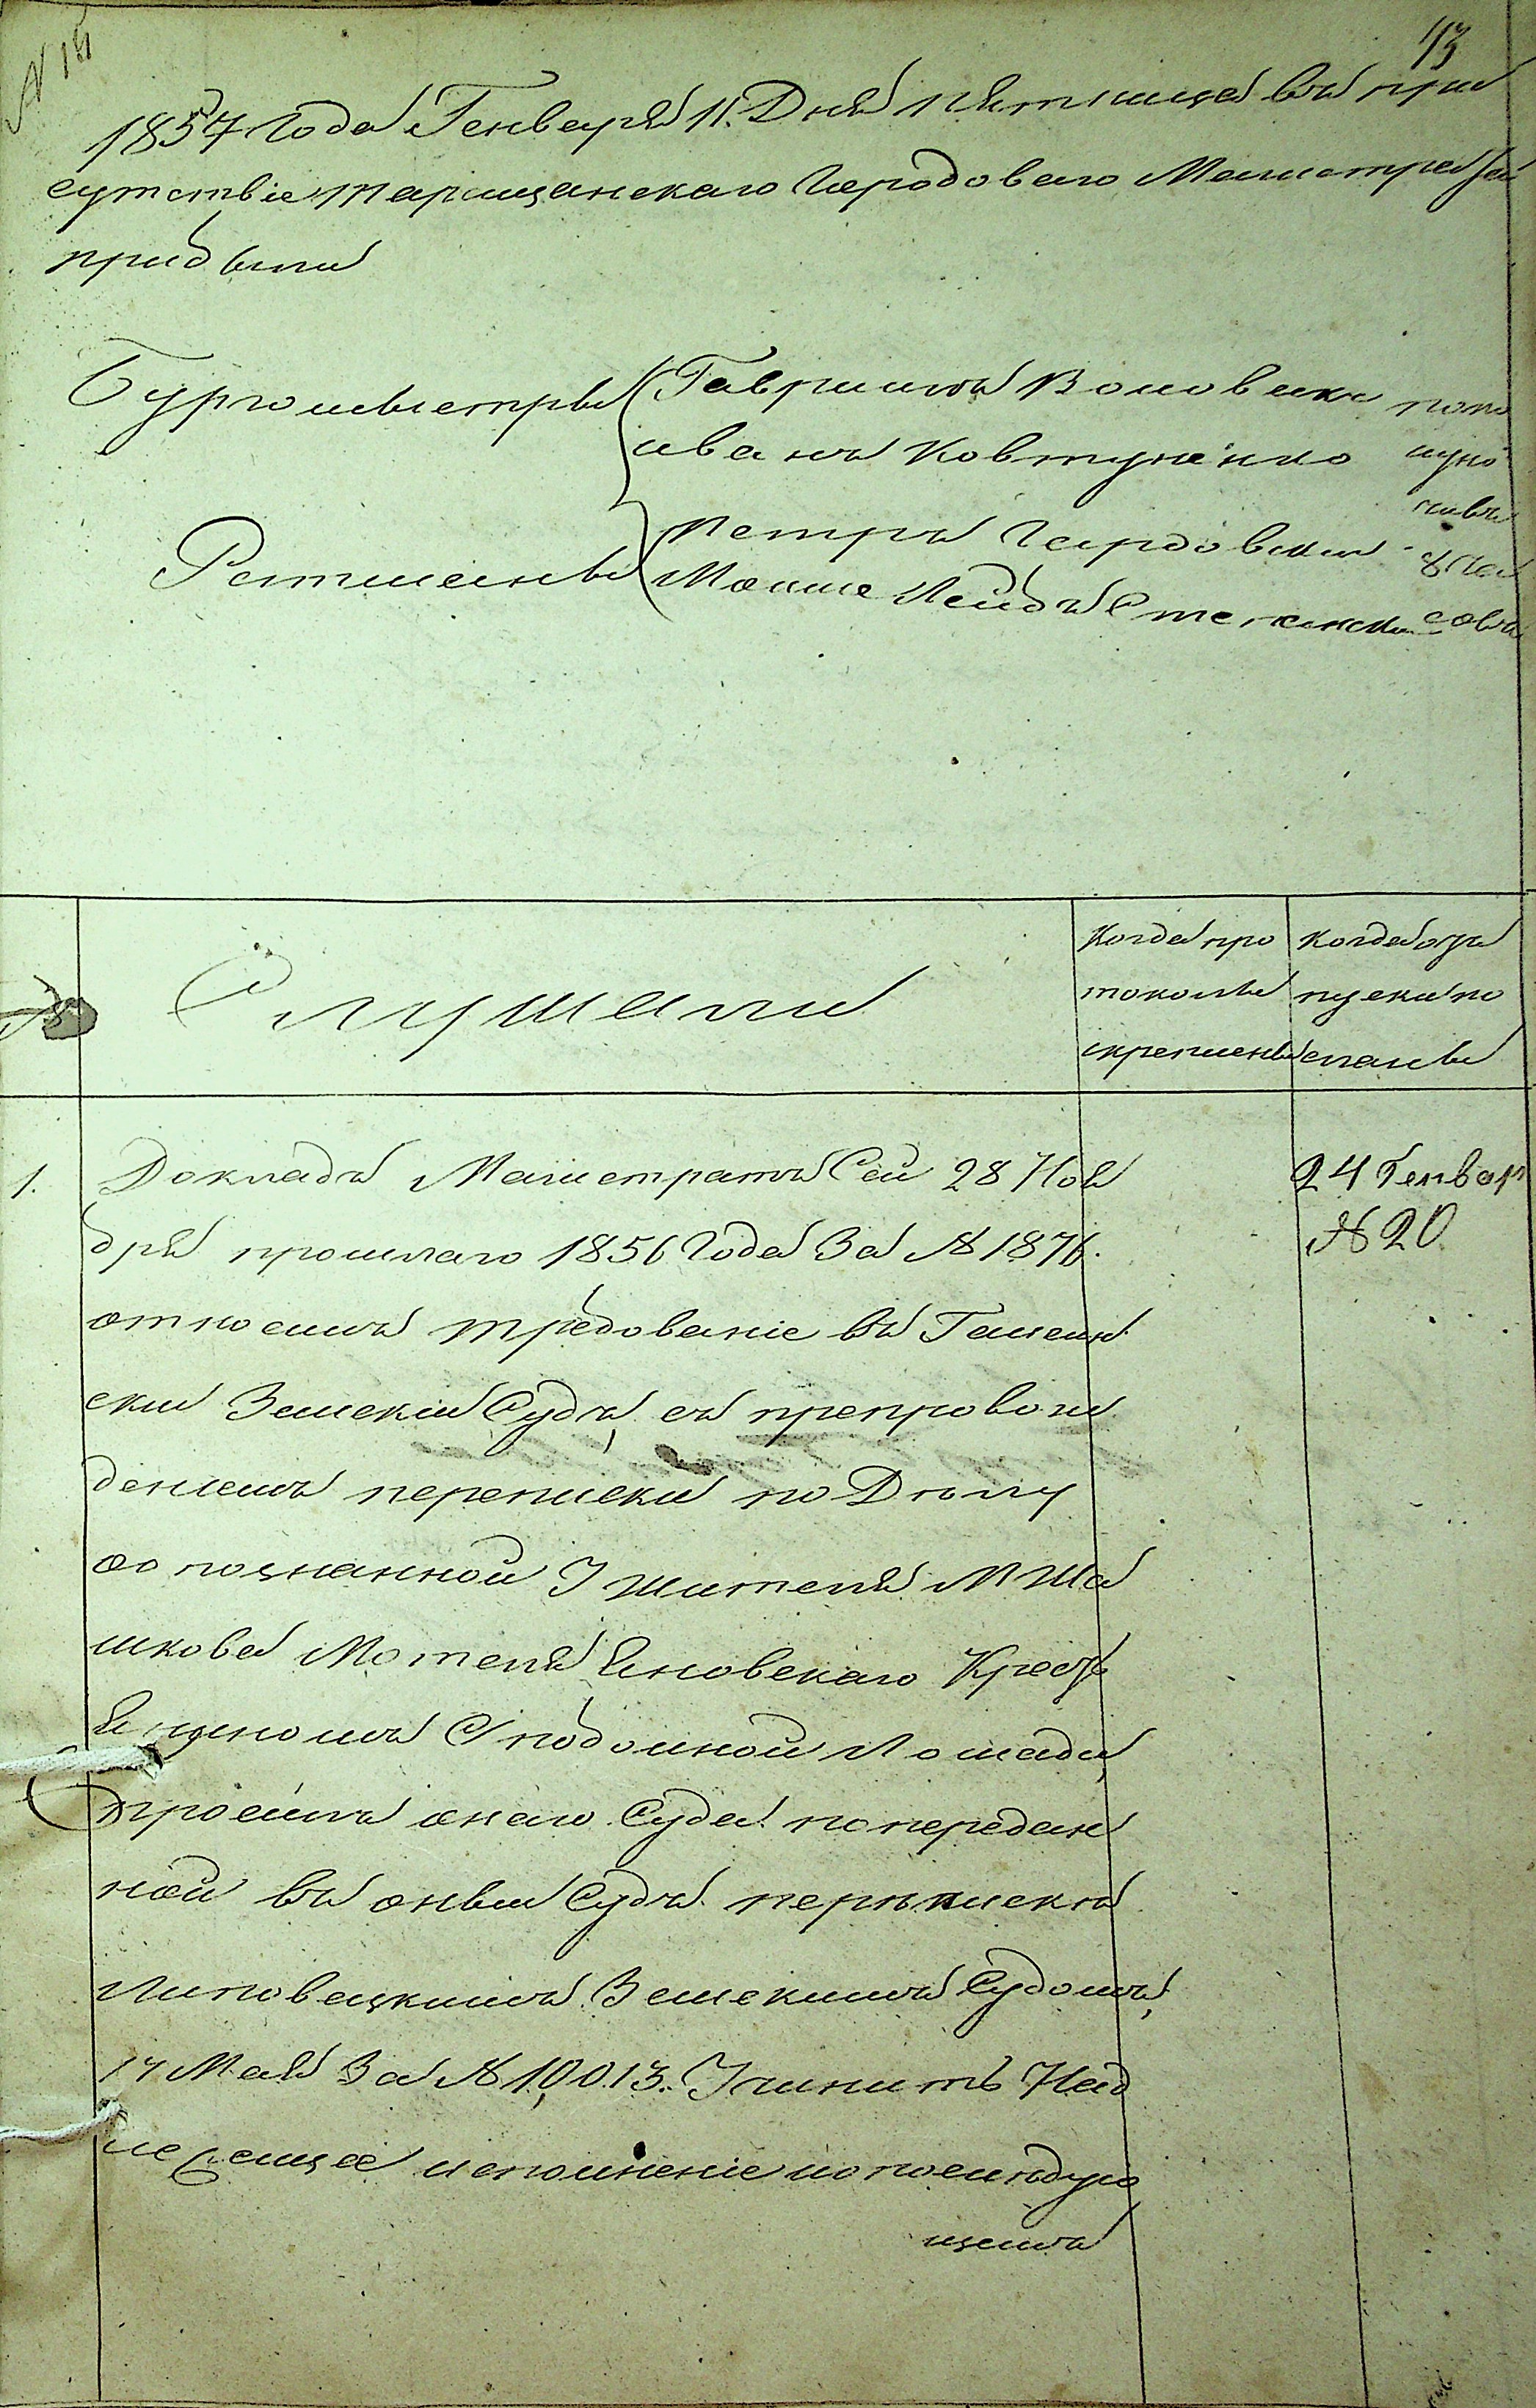 № 14
13
1857 Года Генваря 11. Дня пятница въ при
сутствіе Таращанскаго Городоваго Магистрата
прибыли
Бургомистры Гавріилъ Воловикъ пополу
Иванъ Ковтуненко
Ратманы Петръ Гордовскій
Мошке Лейбъ часовъ
№
Слушали
Когда про
токолы
скреплены
Когда отъ
пуски по
сланы
1. Докладъ Магистратъ Сей 28 Ноя
бря прошлаго 1856 Года За № 1876.
относилъ требованіе въ Гайсин
скій Земскій Судъ, съ препровож
деніемъ переписки по Дѣлу
об опознанной У жителя М Жа
шкова Мотеля Яновскаго Кресть
яниномъ Слободяной Лошади,
прося онаго Суда по передан
ной въ оный Судъ перепискѣ
Липовецкимъ Земскимъ Судомъ,
17 Мая За № 10,013. Учинить Над
лежащее исполненіе и о послѣдую
щемъ
24 Генвар
№ 20